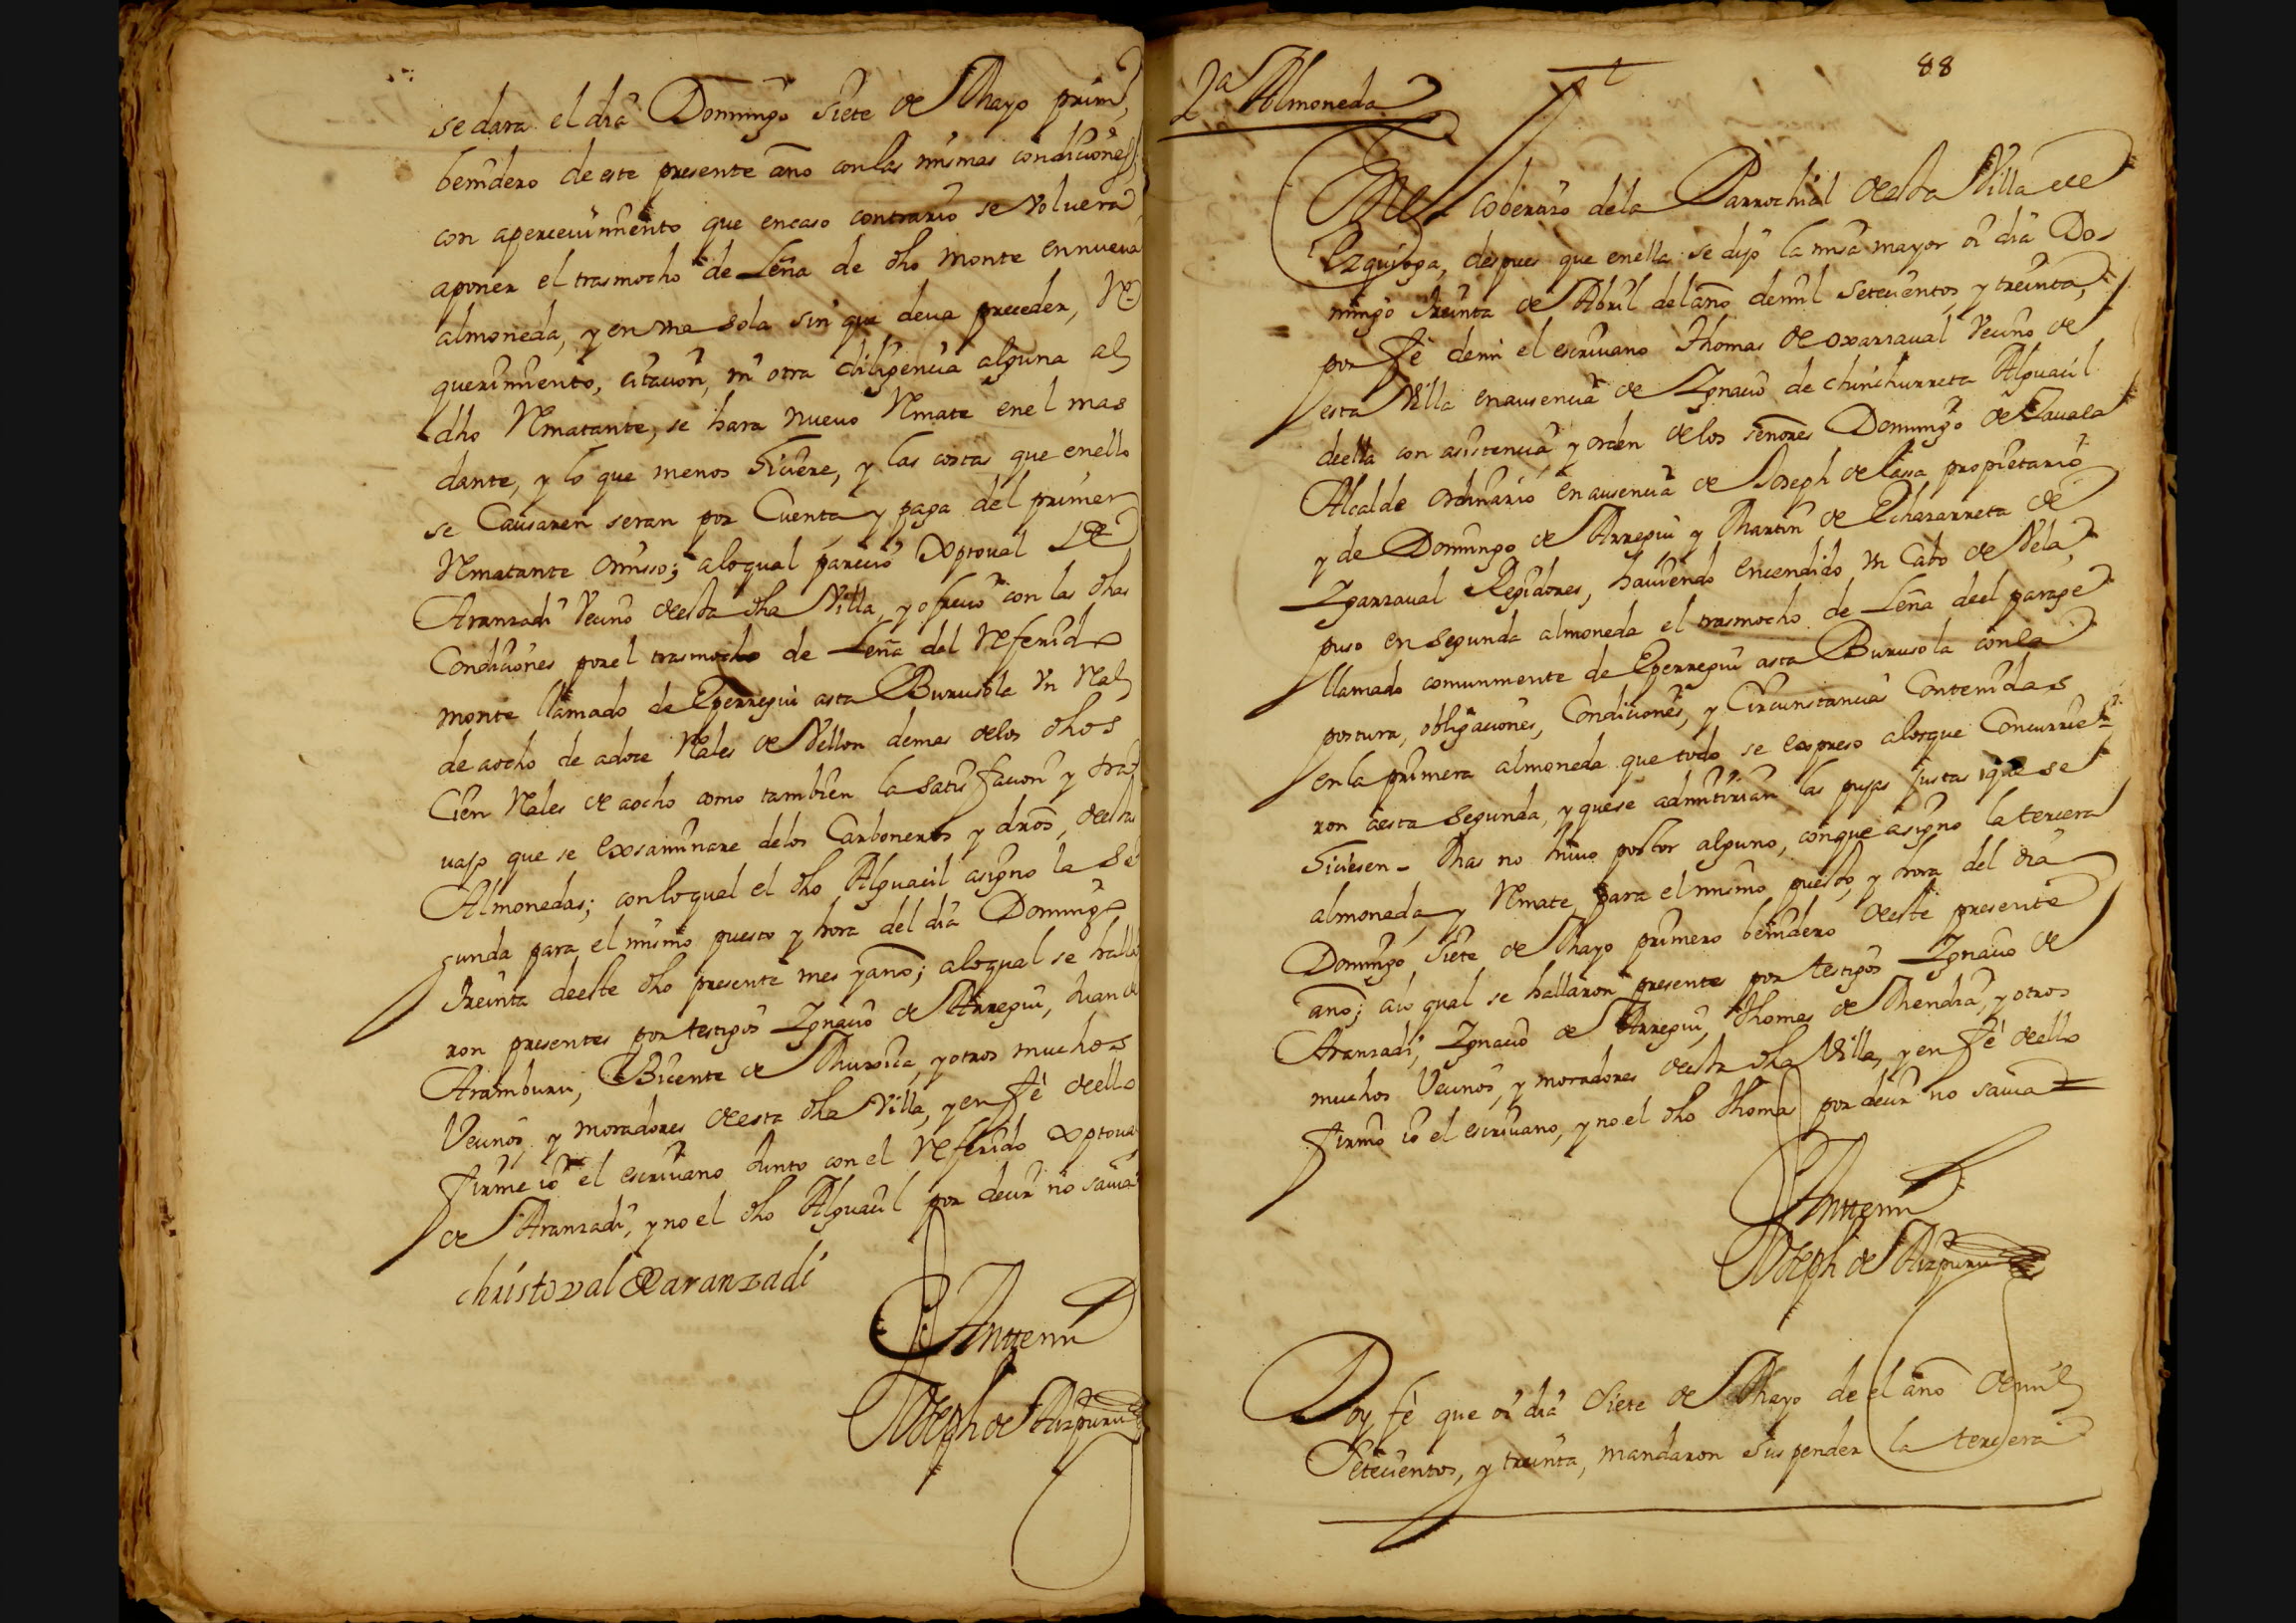 se dara el dia Domingo siete de Mayo primº
benidero de este presente año con las mismas condiciones,
con apercevimiento que encaso contrario se voluera
aponer el trasmocho de Leña de dho monte en nueva
almoneda, y en vna sola sin que deua preceder, Re
querimiento, citacion, ni otra diligencia alguna al
dho Rematante, se hara nuevo Remate en el mas
dante, y lo que menos hiciere, y las costas que enello
se Causaren seran por Cuenta y paga del primer
Rematante omisso; aloqual parecio Xptoual de
Aranzadi Vecino de esta dha Villa, y ofrecio con las dhas
Condiciones por el trasmocho de Leña del Referido
monte llamado de Eperregui asta Burusola vn Real
de aocho de adoce Reales de Vellon demas de los dhos
Cien Reales de aocho como tambien la satisfacion y tra
uajo que se exsaminare delos Carboneros y dros, de estas
Almonedas; conloqual el dho Alguacil asigno la Se
gunda para el mismo puesto y hora del dia Domingo
treinta deeste dho presente mes y año; aloqual se halla
ron presentes por testigos Ignacio de Arregui, Juan de
Aramburu, Bicente de Muroica, y otros muchos
Vecinos, y moradores de esta dha Villa, y en fè de ello
firme io el escriuano Junto con el Referido Xptoual
de Aranzadi, y no el dho Alguacil por decir no sauia
christoval de aranzadi
Anttemi
Joseph de Aizpuru
88
2ª Almoneda
En el coberizo dela Parrochial de esta Villa de
Ezquioga, despues que enella se dijo la misa mayor oi dia Do-
mingo treinta de Abril del año demil setecientos y treinta,
por fè demi el escriuano Thomas de oxarraual Vecino de
esta Villa en ausencia de Ignacio de chinchurreta Alguacil
deella con asistencia y orden de los señores Domingo de Zauala
Alcalde ordinario en ausencia de Joseph de Lasa propietario
y de Domingo de Arregui y Martin de Echazarreta de
Igarraual Regidores, hauiendo encendido vn Cabo de Vela,
puso en segunda almoneda el trasmocho de Leña deel parage
llamado comunmente de Eperregui asta Burusola conla
postura, obligaciones, Condiciones, y Circunstancias Contenidas
en la primera almoneda que todo se expreso alosque Concurrie-
ron aesta segunda, y que se admitirian las pujas justas que se
hiciesen - Mas no huuo postor alguno, conque asigno la tercera
almoneda y Remate para el mismo puesto, y hora del dia
Domingo siete de Mayo primero benidero de este presente
año; alo qual se hallaron presentes por testigos Ignacio de
Aranzadi, Ignacio de Arregui, Thomas de Mendia, y otros
muchos Vecinos, y moradores de esta dha Villa, y en fè deello
firmo io el escriuano, y no el dho Thomas por decir no sauia =
Anttemi
Joseph de Aizpuru
Doy fè que oi dia siete de Mayo de el año de mil
Setecientos, y treinta, mandaron suspender la tercera